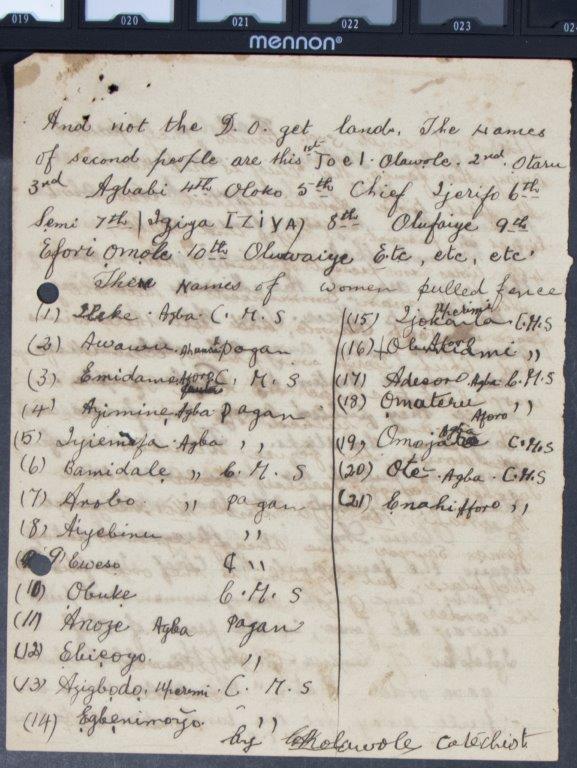 019 020 021 022 023
mennon®
And not the D. O. get land. The Names
of second people are this 1st Joel. Olawole. 2nd. Otaru
3rd Agbabi 4th Oloko 5th Chief Ijerifo 6th
Semi 7th (Iziya IZIYA) 8th Olufaiye 9th
Efori Omole. 10th Oluwaiye Etc, etc, etc'
Then Names of women pulled fence
(1) Ileke. Agba. C. M. S
(2) Awawu pagan
(3) Emidama C. M. S
(4) Azimine, Agba pagan
(5) Agba ,,
(6) Bamidale ,, C. M. S
(7) Arobo. ,, pagan
(8) Aiyebinu ,,
(9) Eweso ,,
(10) Obuke C. M. S
(11) Anoze Agba pagan
(12) Ebicoyo. ,,
(13) Azigbodo. C. M. S
(14) Egbenimoyo. ,,
(15) C.M.S
(16) ,,
(17) Adesoro Agba C.M.S
(18) Omateru Aforo ,,
(19) C.M.S
(20) Ote - Agba. C.M.S
(21) Enahi Aforo ,,
by Kolawole Catechist.